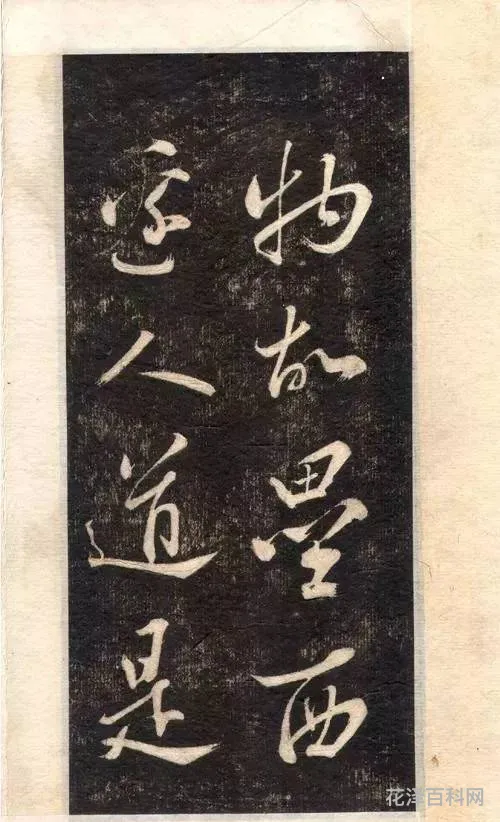 物故壘西
邊人道是
花泽百科网